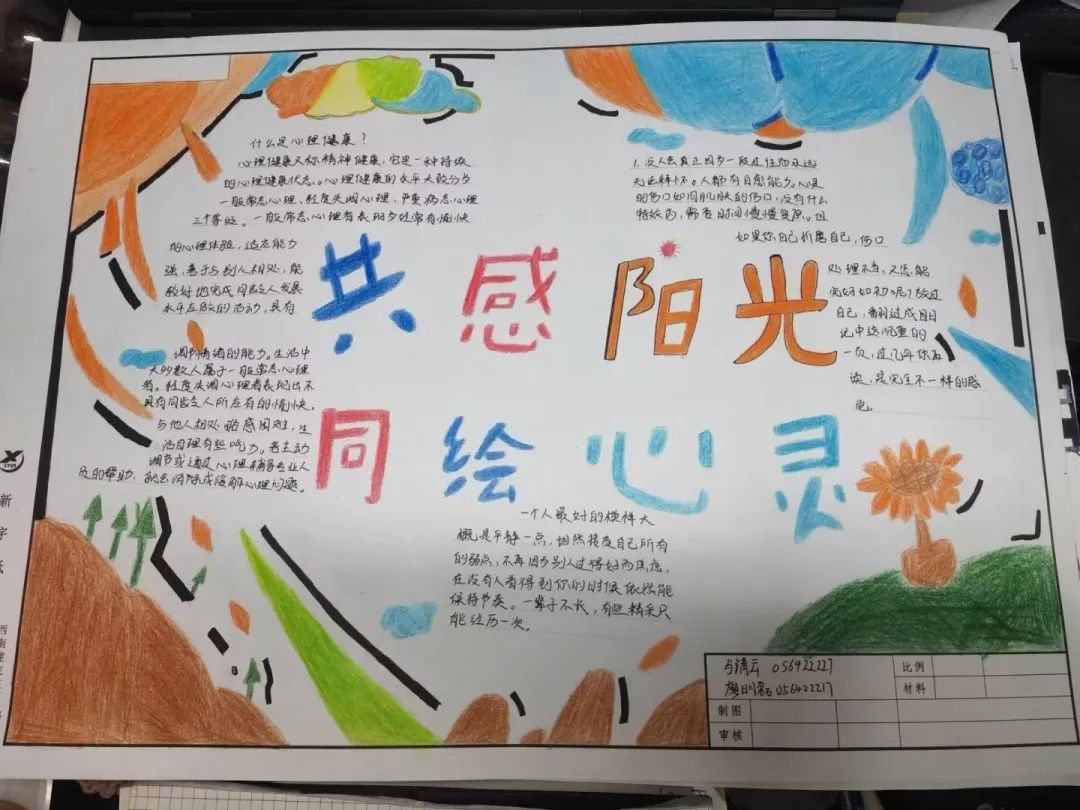 什么是心理健康？
心理健康又称精神健康，它是一种持续
的心理健康状态。心理健康的水平大致分为
一般常态心理、轻度失调心理、严重病态心理
三个等级。一般常态心理者表现为经常有愉快
的心理体验，适应能力
强，善于与别人相处，能
较好地完成同龄人发展
水平应做的活动，具有
调节情绪的能力。生活中
大多数人属于一般常态心理
者。轻度失调心理者表现出不
具有同龄人所应有的愉快，
与他人相处略感困难，生
活自理有些吃力。若主动
调节或通过心理辅导专业人
员的帮助，就会消除或缓解心理问题。
1.没人会真正因为一段过往而永远
无法释怀。人都有自愈能力。心灵
的伤口如同肌肤的伤口，没有什么
特效药，需要时间慢慢复原。但
如果你自己折磨自己，伤口
处理不当，又怎能
完好如初呢？放过
自己，翻过成日日
记中这沉重的
一页，过几年你再
读，是完全不一样的感
觉。
共感阳光
同绘心灵
一个人最好的模样大
概是平静一点，坦然接受自己所有
的弱点，不再因为别人过得好而焦虑，
在没有人看得到你的时候依然能
保持节奏。一辈子不长，有些精采只
能经历一次。
056422227
056422217
比例
材料
制图
审核
新
宇
纸
西
南